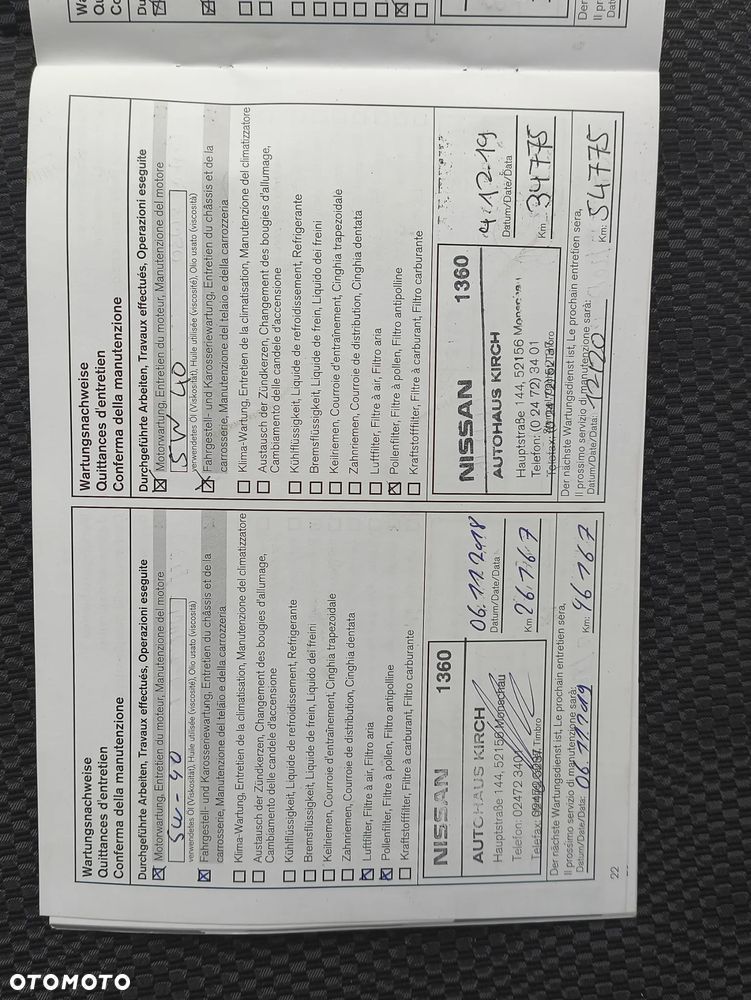 Wartungsnachweise
Quittances d'entretien
Conferma della manutenzione
Durchgeführte Arbeiten, Travaux effectués, Operazioni eseguite
☒ Motorwartung, Entretien du moteur, Manutenzione del motore
5W-40
verwendetes Öl (Viskosität), Huile utilisée (viscosité), Olio usato (viscosità)
☒ Fahrgestell- und Karosseriewartung, Entretien du châssis et de la
carrosserie, Manutenzione del telaio e della carrozzeria
☐ Klima-Wartung, Entretien de la climatisation, Manutenzione del climatizzatore
☐ Austausch der Zündkerzen, Changement des bougies d'allumage,
Cambiamento delle candele d'accensione
☐ Kühlflüssigkeit, Liquide de refroidissement, Refrigerante
☐ Bremsflüssigkeit, Liquide de frein, Liquido dei freini
☐ Keilriemen, Courroie d'entraînement, Cinghia trapezoidale
☐ Zahnriemen, Courroie de distribution, Cinghia dentata
☒ Luftfilter, Filtre à air, Filtro aria
☒ Pollenfilter, Filtre à pollen, Filtro antipolline
☐ Kraftstofffilter, Filtre à carburant, Filtro carburante
NISSAN 1360
AUTOHAUS KIRCH
Hauptstraße 144, 52156 Monschau
Telefon: 02472 3401
Telefax:
Timbro
06.11.2018
Datum/Date/Data
Km 26167
Der nächste Wartungsdienst ist, Le prochain entretien sera,
Il prossimo servizio di manutenzione sarà:
Datum/Date/Data: 06.11.2019 Km: 46167
22
Wartungsnachweise
Quittances d'entretien
Conferma della manutenzione
Durchgeführte Arbeiten, Travaux effectués, Operazioni eseguite
☒ Motorwartung, Entretien du moteur, Manutenzione del motore
5W40
verwendetes Öl (Viskosität), Huile utilisée (viscosité), Olio usato (viscosità)
☒ Fahrgestell- und Karosseriewartung, Entretien du châssis et de la
carrosserie, Manutenzione del telaio e della carrozzeria
☐ Klima-Wartung, Entretien de la climatisation, Manutenzione del climatizzatore
☐ Austausch der Zündkerzen, Changement des bougies d'allumage,
Cambiamento delle candele d'accensione
☐ Kühlflüssigkeit, Liquide de refroidissement, Refrigerante
☐ Bremsflüssigkeit, Liquide de frein, Liquido dei freini
☐ Keilriemen, Courroie d'entraînement, Cinghia trapezoidale
☐ Zahnriemen, Courroie de distribution, Cinghia dentata
☐ Luftfilter, Filtre à air, Filtro aria
☒ Pollenfilter, Filtre à pollen, Filtro antipolline
☐ Kraftstofffilter, Filtre à carburant, Filtro carburante
NISSAN 1360
AUTOHAUS KIRCH
Hauptstraße 144, 52156 Monschau
Telefon: (0 24 72) 34 01
Telefax: (0 24 72)
4.12.19
Datum/Date/Data
Km 34775
Der nächste Wartungsdienst ist, Le prochain entretien sera,
Il prossimo servizio di manutenzione sarà:
Datum/Date/Data: 12/20 Km: 54775
OTOMOTO